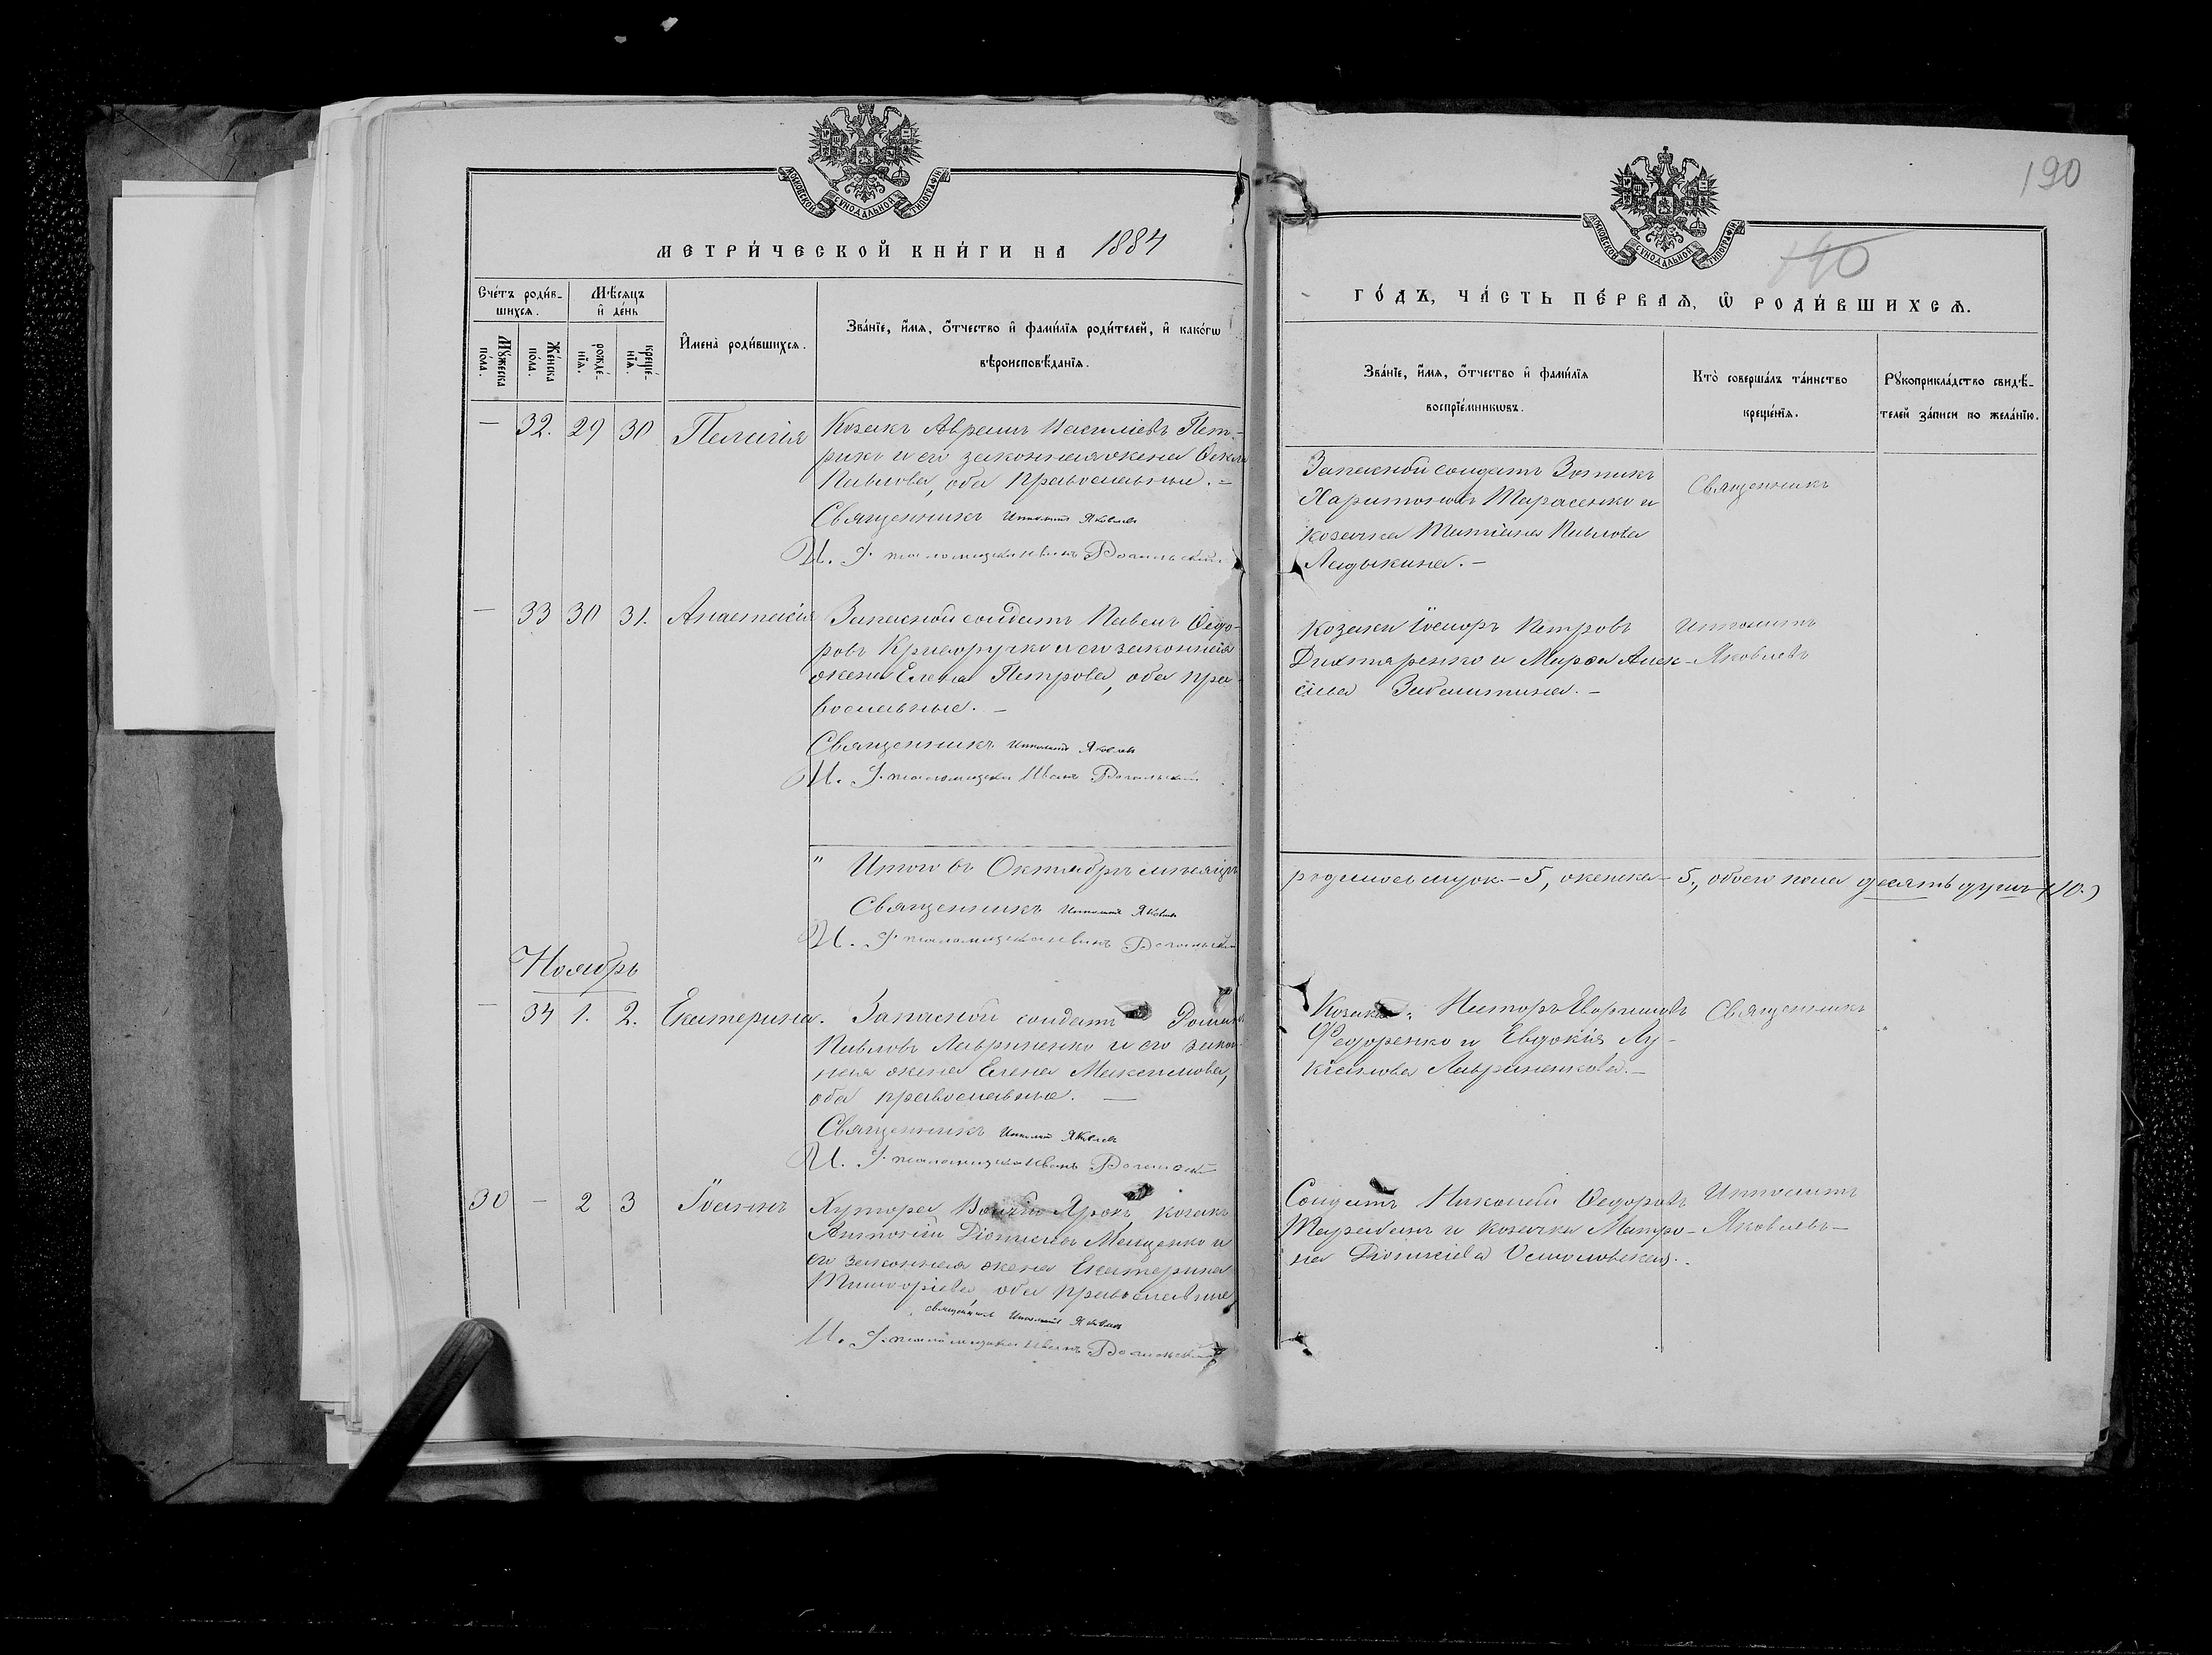 190
МОСКОВСКОЙ СѴНОДАЛЬНОЙ ТИПОГРАФІИ
МЕТРИ́ЧЕСКОЙ КНИ́ГИ НА 1884
Сче́тъ роди́в-
шихсѧ.
Мѣ́сѧцъ
и҆ де́нь
Мꙋ́жеска
по́ла.
Же́нска
по́ла.
рожде́-
нїѧ.
креще́-
нїѧ.
И҆мена̀ роди́вшихсѧ.
Зва́нїе, и҆́мѧ, ѻ҆́тчество и҆ фами́лїѧ роди́телей, и҆ како́гѡ
вѣроисповѣ́данїѧ.
— 32. 29 30 Пелагія
Козакъ Аврамъ Василіевъ Пет-
рикъ и его законная жена Ѳекла
Павлова, оба православные. =
Священникъ Ипполитъ Яковлевъ
И. д. псаломщика Иванъ
— 33 30 31. Анастасія
Запасной солдатъ Павелъ Ѳедо-
ровъ Криворучко и его законная
жена Елена Петрова, оба пра-
вославные. —
Священникъ Ипполитъ Яковлевъ
И. д. псаломщика Иванъ
" Итого въ Октябрѣ мѣсяцѣ
Священникъ Ипполитъ Яковлевъ
И. д. псаломщика Иванъ
Ноябрь
— 34 1. 2. Екатерина.
Запасной солдатъ Романъ
Павловъ Лавриненко и его закон-
ная жена Елена Максимова,
оба православные. —
Священникъ Ипполитъ Яковлевъ
И. д. псаломщика Иванъ
30 — 2 3 Іоаннъ
Хутора Яръ козакъ
Антоній Діонисіевъ Мащенко и
его законная жена Екатерина
оба православные
священникъ Ипполитъ Яковлевъ
И. д. псаломщика Иванъ
МОСКОВСКОЙ СѴНОДАЛЬНОЙ ТИПОГРАФІИ
ГО́ДЪ, ЧА́СТЬ ПЕ́РВАѦ, Ѽ РОДИ́ВШИХСѦ.
Зва́нїе, и҆́мѧ, ѻ҆́тчество и҆ фами́лїѧ
воспрїе́мникѡвъ.
Кто̀ соверша́лъ та́инство
креще́нїѧ.
Рꙋкоприкла́дство свидѣ́-
телей за́писи по жела́нїю.
Запасной солдатъ Зотикъ
Харитоновъ Тарасенко и
козачка Татіана Павлова
Ладыкина. —
Священникъ
Козаки Петровъ
Дихтяренко и Марѳа Алек-
сіева Заболотина. —
Ипполитъ
Яковлевъ
родилось муж. — 5, женска — 5., обоего пола десять душъ (10.)
Козаки: Несторъ
Федоренко и Евдокія Лу-
кіанова Лавриненкова. —
Священникъ
Солдатъ Николай Ѳедоровъ
и козачка Матро-
на Діонисіева
Ипполитъ
Яковлевъ —